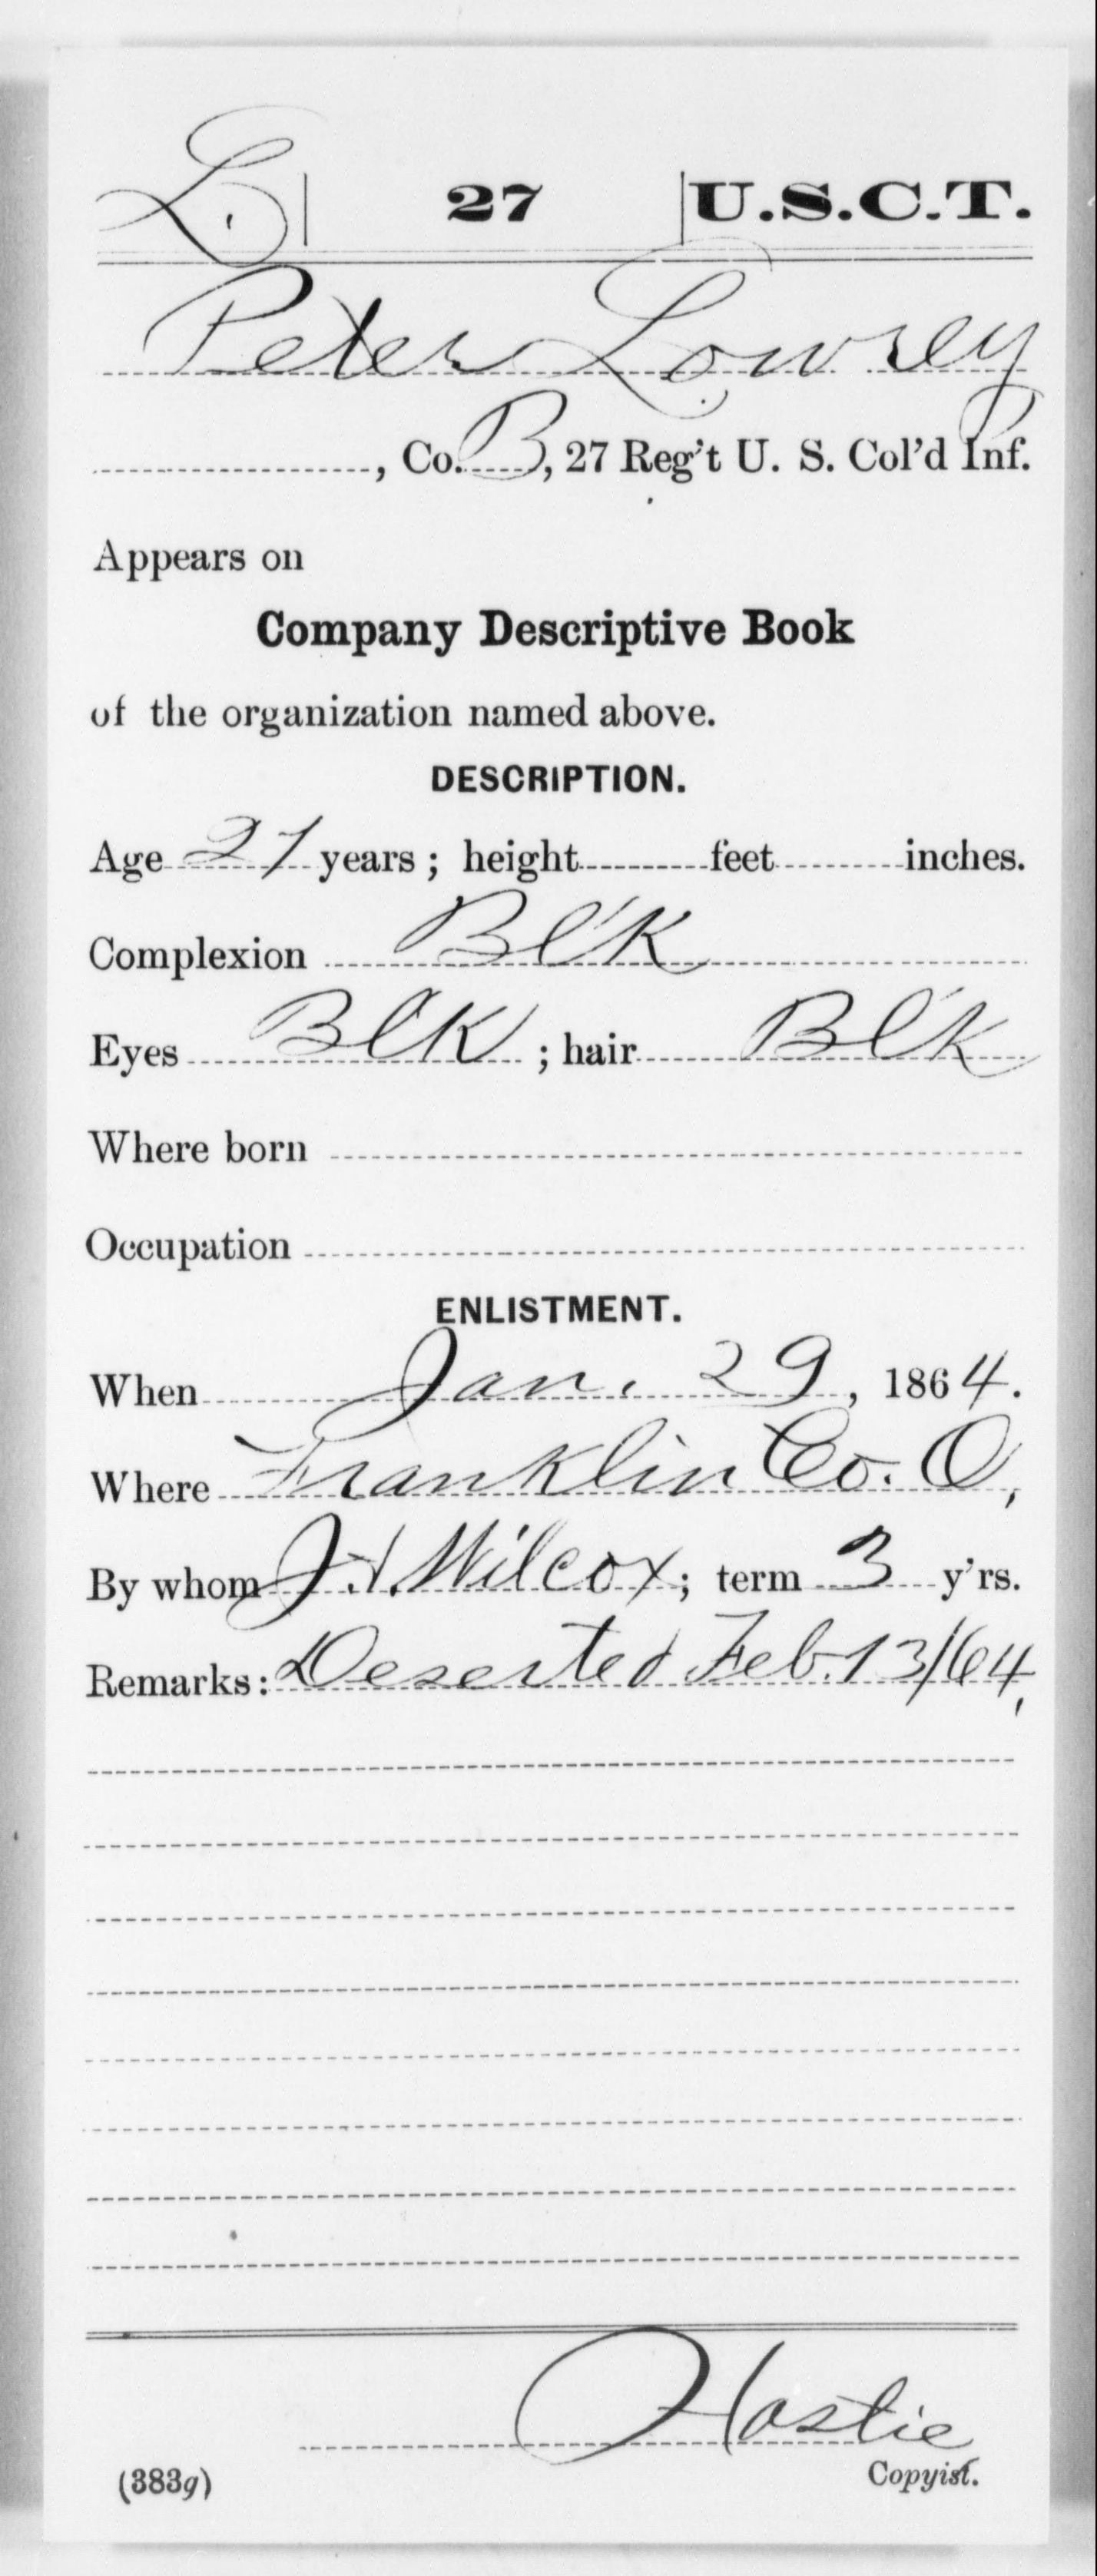 L. | 27 | U.S.C.T.
Peter Lowrey
, Co. B, 27 Reg't U. S. Col'd Inf.
Appears on
Company Descriptive Book
of the organization named above.
DESCRIPTION.
Age 21 years; height feet inches.
Complexion Bl'k
Eyes Bl'k; hair Bl'k
Where born
Occupation
ENLISTMENT.
When Jan. 29, 1864.
Where Franklin Co. O,
By whom J. H. Wilcox; term 3 y'rs.
Remarks: Deserted Feb. 13/64,
Hastie
(383g) Copyist.